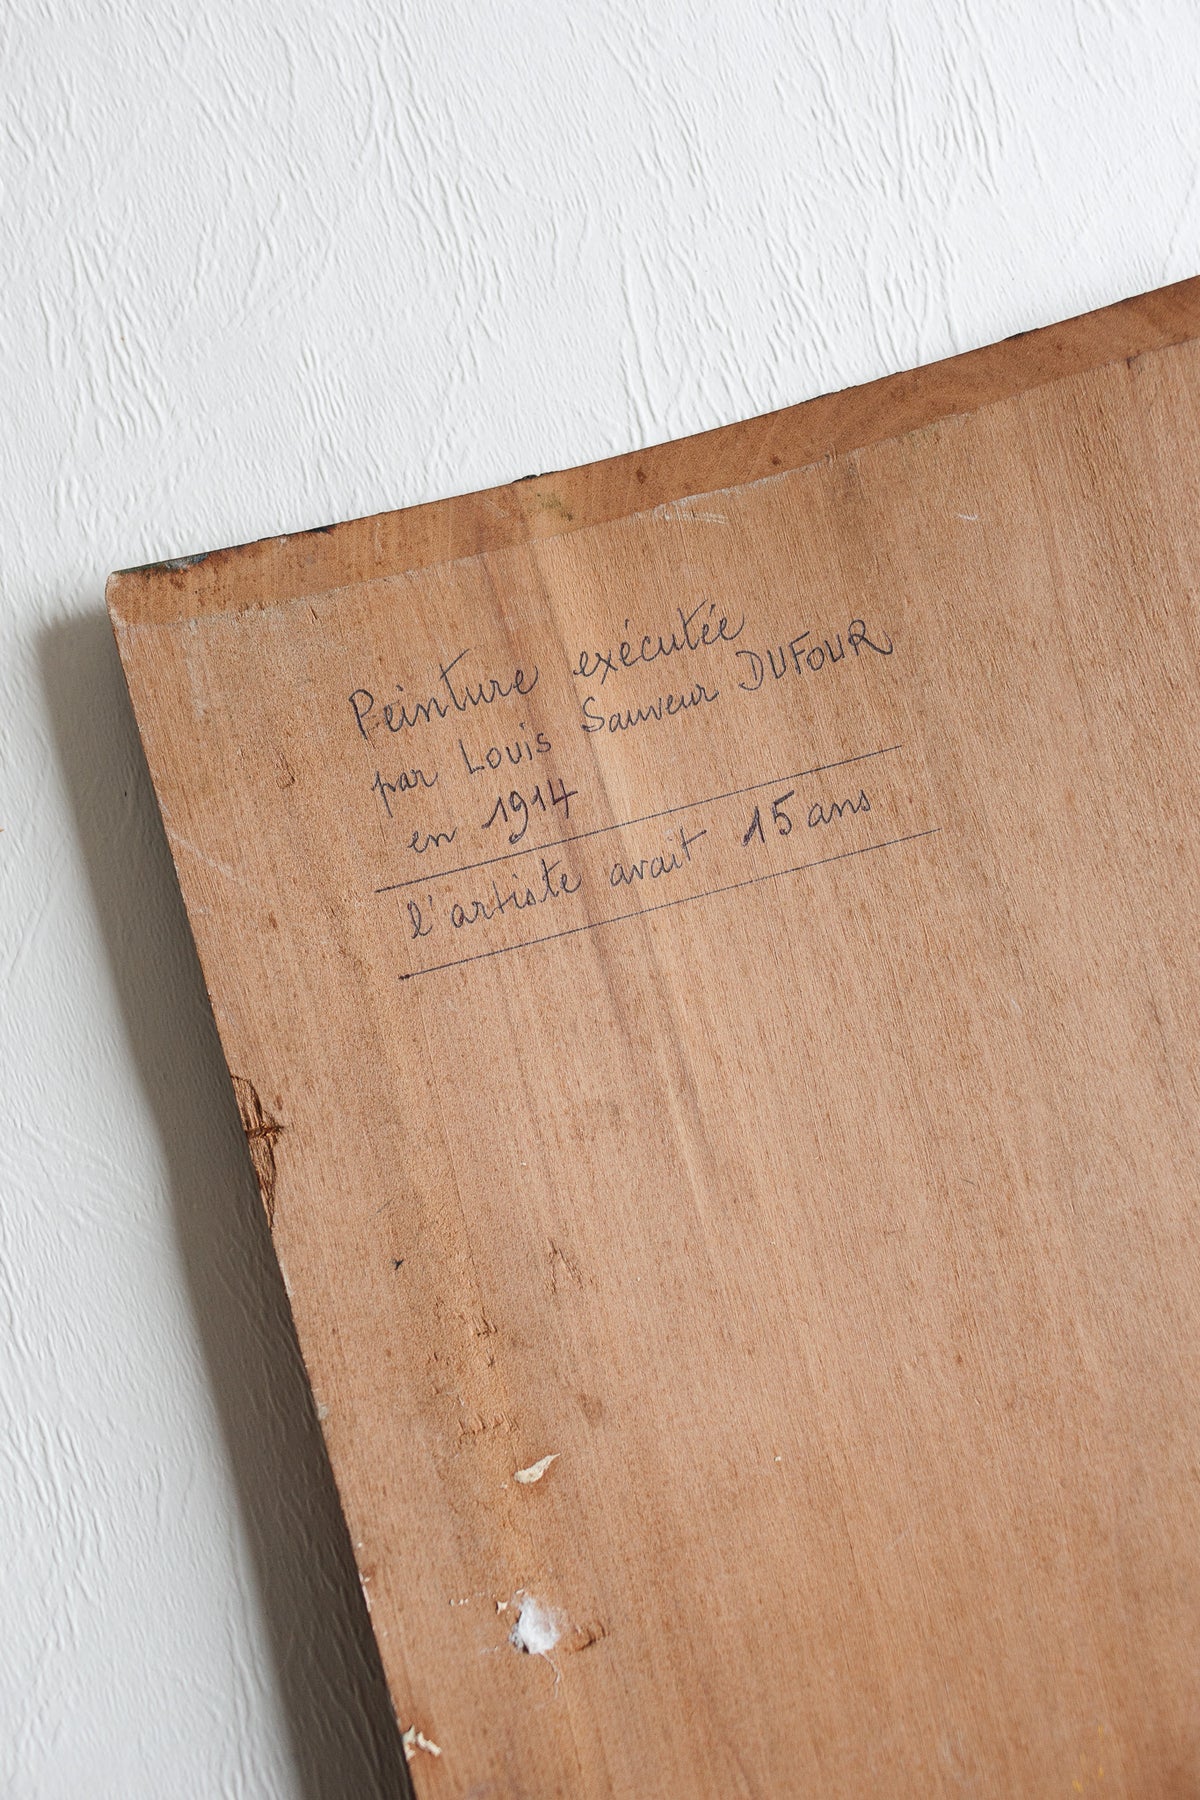 Peinture exécutée
par Louis Sauveur DUFOUR
en 1914
l'artiste avait 15 ans